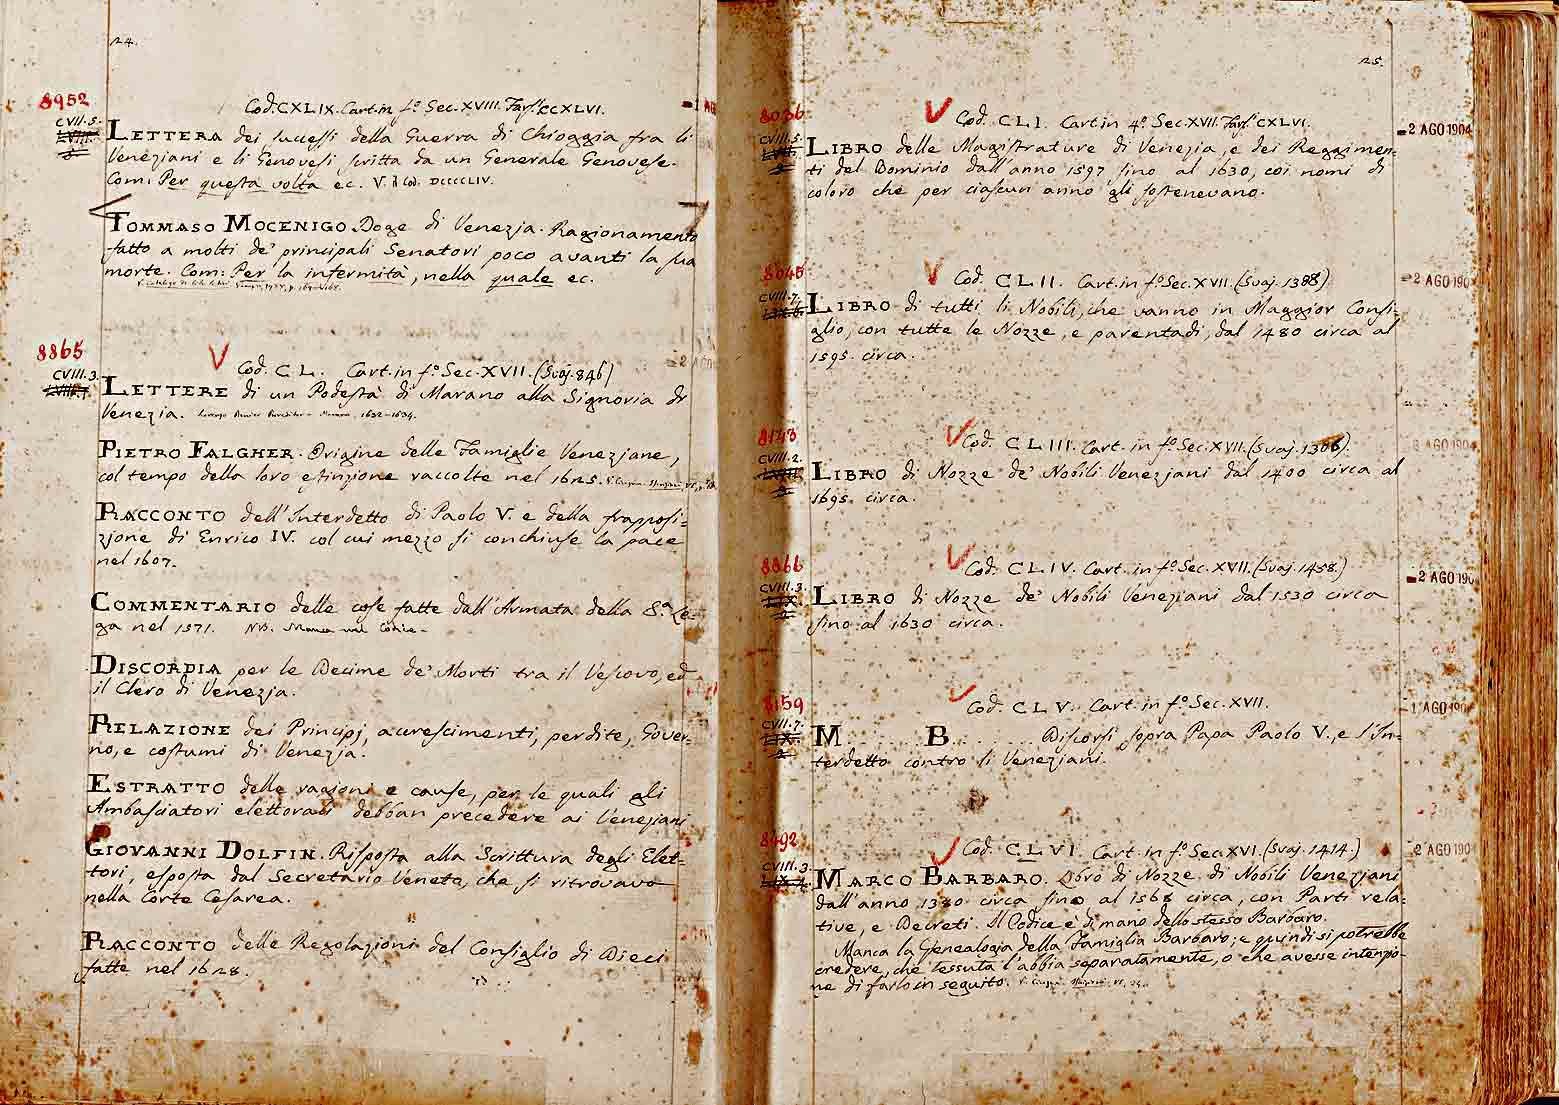 24.
8952
CVII.5.
Cod. CXLIX. Cart. in fº. Sec. XVIII. Farſ. CCXLVI.
LETTERA dei ſucceſſi della Guerra di Chioggia fra li
Veneziani e li Genoveſi ſcritta da un Generale Genoveſe.
Com: Per queſta volta ec. V. il Cod. DCCCCLIV.
TOMMASO MOCENIGO Doge di Venezia. Ragionamento
fatto a molti de' principali Senatori poco avanti la ſua
morte. Com: Per la infermità, nella quale ec.
8865
CVIII.3.
Cod. CL. Cart. in fº. Sec. XVII. (Svaj. 846)
LETTERE di un Podeſtà di Marano alla Signoria di
Venezia. 1632-1634.
PIETRO FALGHER. Origine delle Famiglie Veneziane,
col tempo della loro eſtinzione raccolte nel 1625.
RACCONTO dell'Interdetto di Paolo V. e della frappoſi=
zione di Enrico IV. col cui mezzo ſi conchiuſe la pace
nel 1607.
COMMENTARIO delle coſe fatte dall'Armata della S.a Le=
ga nel 1571. NB. Manca nel Codice.
DISCORDIA per le Decime de' Morti tra il Veſcovo, ed
il Clero di Venezia.
RELAZIONE dei Principj, accreſcimenti, perdite, Gover=
no, e coſtumi di Venezia.
ESTRATTO delle ragioni e cauſe, per le quali gli
Ambaſciatori elettorali debban precedere ai Veneziani
GIOVANNI DOLFIN. Riſpoſta alla Scrittura degli Elet=
tori, eſpoſta dal Secretario Veneto, che ſi ritrovava
nella Corte Ceſarea.
RACCONTO delle Regolazioni del Conſiglio di Dieci
fatte nel 1628.
25.
8036
CVIII.5.
Cod. CLI. Cart. in 4º. Sec. XVII. Farſ. CXLVI.
-2 AGO 1904
LIBRO delle Magiſtrature di Venezia, e dei Reggimen=
ti del Dominio dall'anno 1597. ſino al 1630, coi nomi di
coloro che per ciaſcun anno gli ſoſtenevano.
8045
CVIII.7.
Cod. CLII. Cart. in fº. Sec. XVII. (Svaj. 1388)
-2 AGO 190
LIBRO di tutti li Nobili, che vanno in Maggior Conſi=
glio, con tutte le Nozze, e parentadi, dal 1480 circa al
1595. circa.
8143
CVIII.2.
Cod. CLIII. Cart. in fº. Sec. XVII. (Svaj. 1386).
AGO 1904
LIBRO di Nozze de' Nobili Veneziani dal 1400 circa al
1695. circa.
8866
CVIII.3.
Cod. CLIV. Cart. in fº. Sec. XVII. (Svaj. 1458.)
-2 AGO 190
LIBRO di Nozze de' Nobili Veneziani dal 1530 circa
ſino al 1630 circa.
8159
CVII.7.
Cod. CLV. Cart. in fº. Sec. XVII.
-1 AGO 190
M......B......... Diſcorſi ſopra Papa Paolo V., e l'In=
terdetto contro li Veneziani.
8492
CVIII.3.
Cod. CLVI. Cart. in fº. Sec. XVI. (Svaj. 1414.)
2 AGO 190
MARCO BARBARO. Libro di Nozze di Nobili Veneziani
dall'anno 1380 circa ſino al 1568 circa, con Parti rela=
tive, e Decreti. Il Codice è di mano dello ſteſſo Barbaro.
Manca la Genealogia della Famiglia Barbaro; e quindi si potrebbe
credere, che tessuta l'abbia separatamente, o che avesse intenzio=
ne di farlo in seguito.